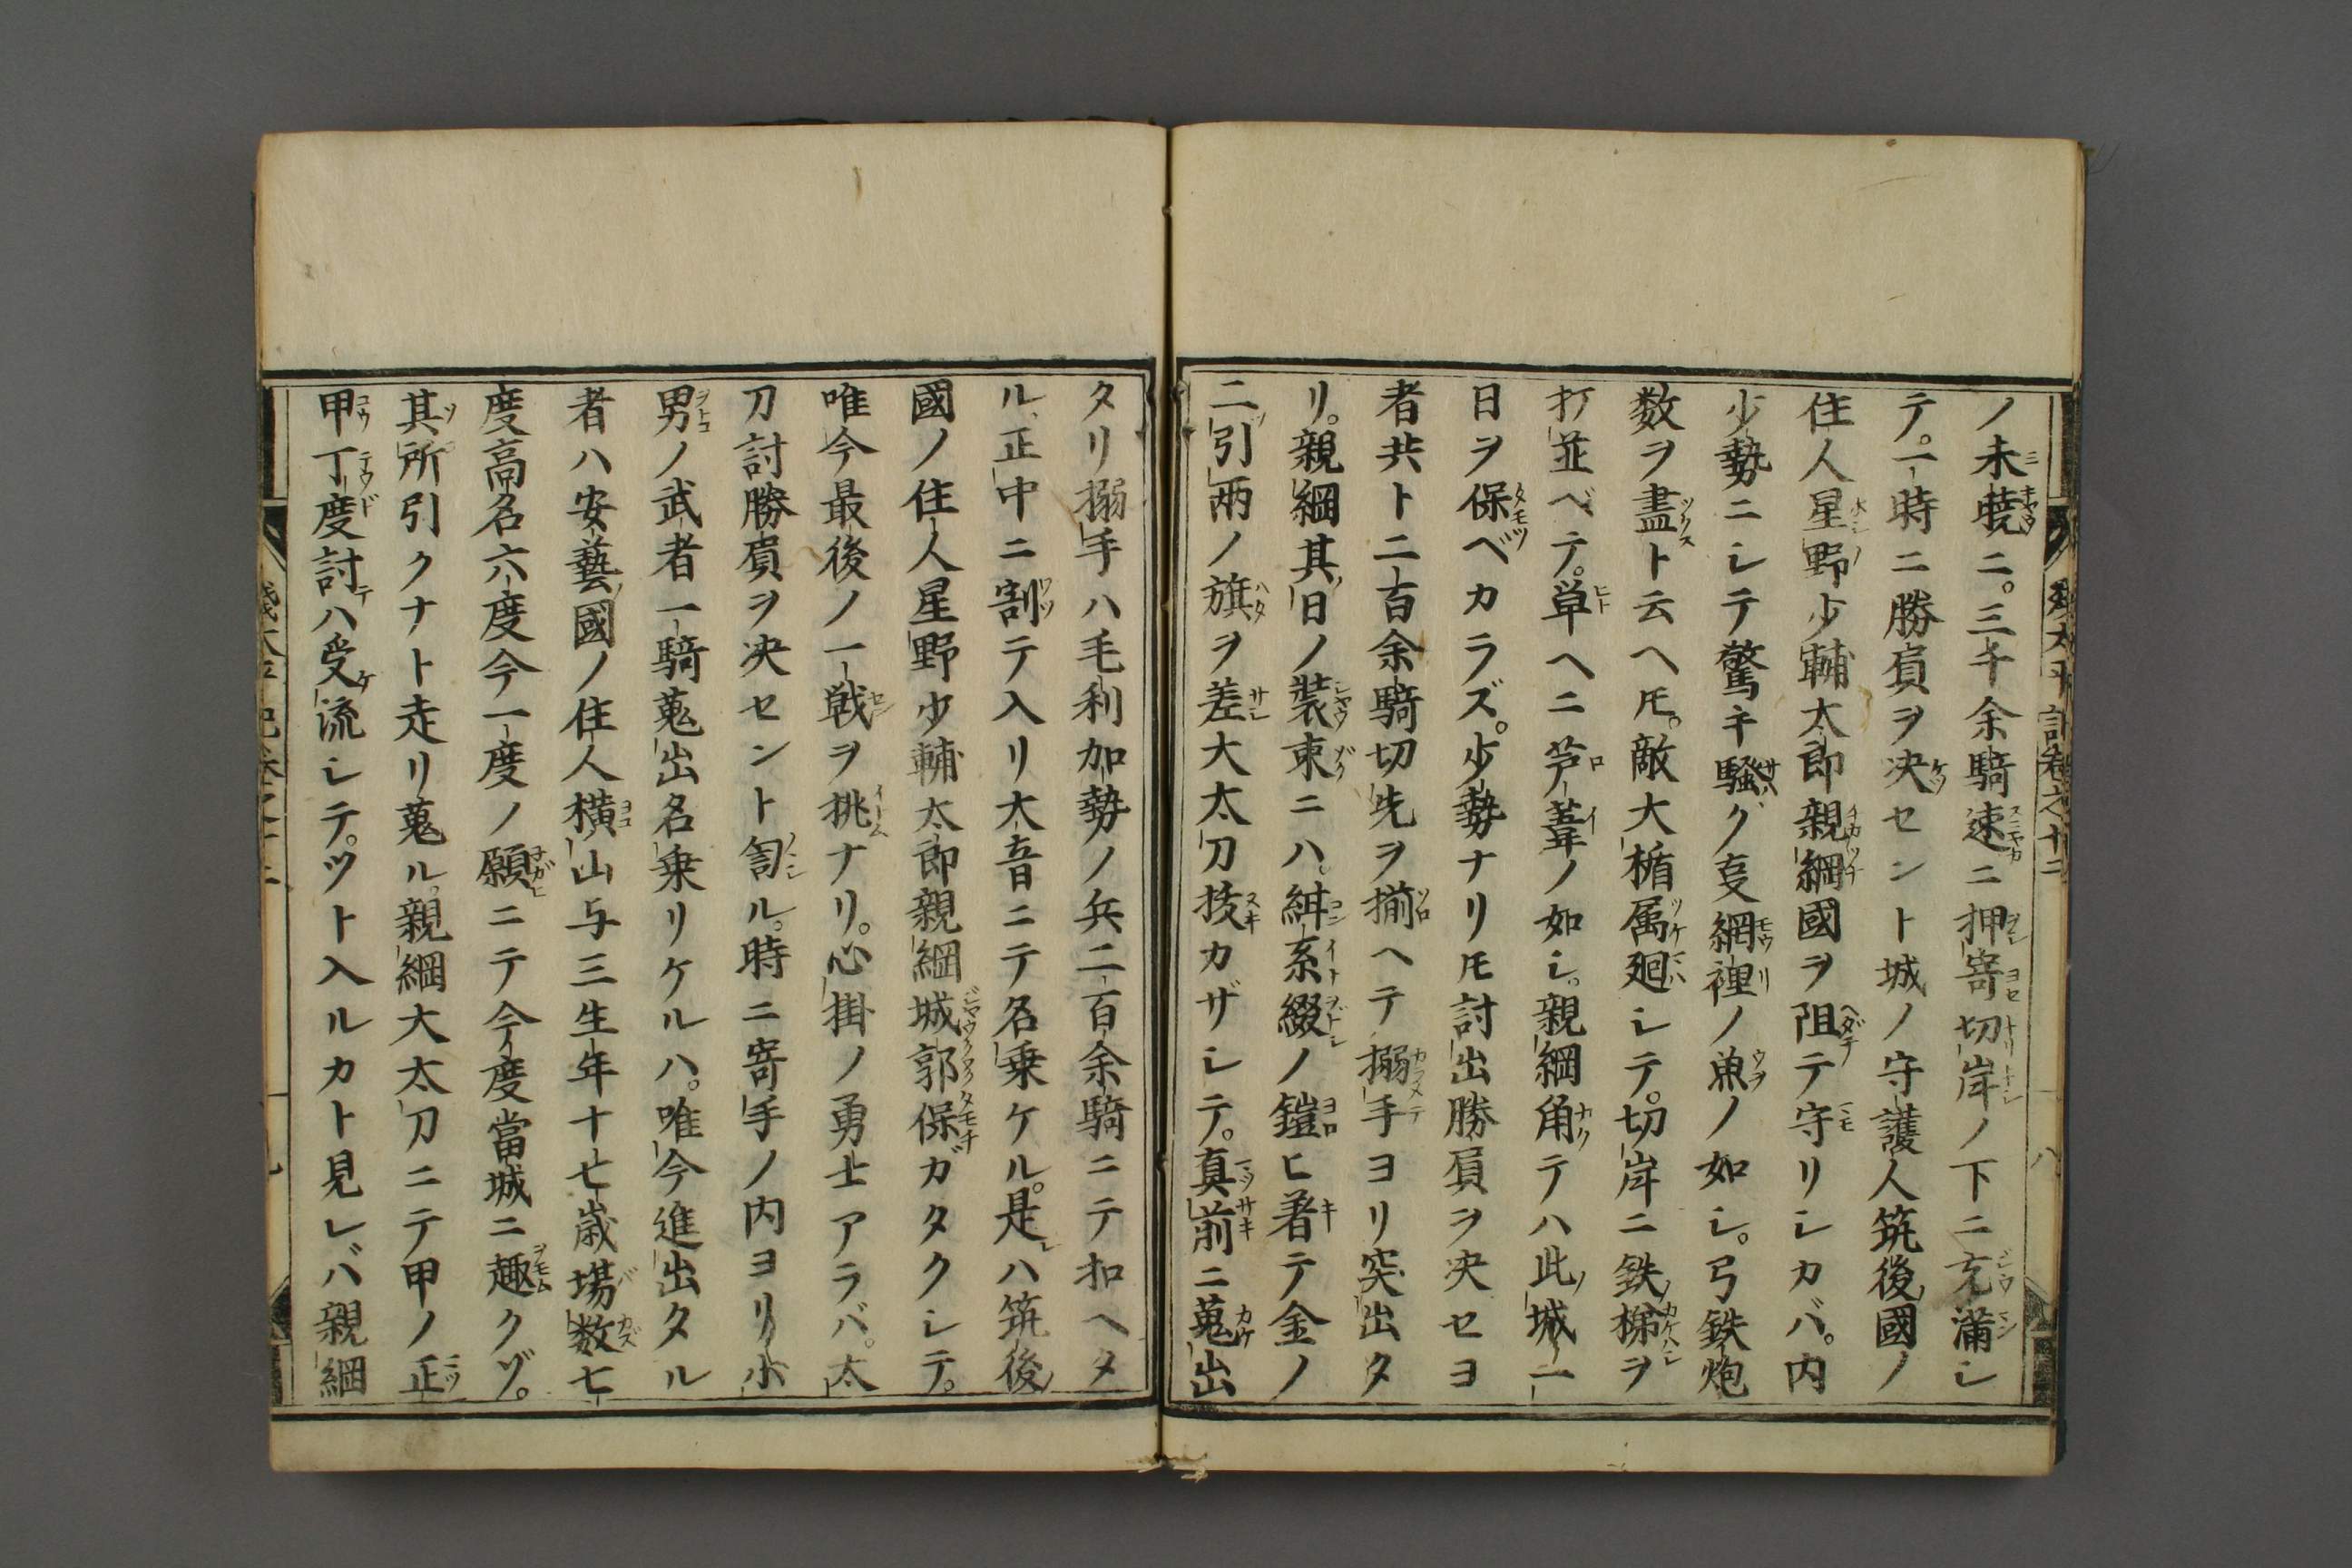 ノ未暁ニ。三千余騎速ニ押寄切岸ノ下ニ充満シ
テ。一時ニ勝負ヲ决セント城ノ守護人筑後國ノ
住人星野少輔太郎親綱國ヲ阻テ守リシカバ。内
少勢ニシテ驚キ騒グ㕝網裡ノ魚ノ如シ。弓鉄炮
数ヲ盡ト云ヘ𪜈。敵大楯属廻シテ。切岸ニ鉄梯ヲ
打並ベテ。単ヘニ芦葦ノ如シ。親綱角テハ此城一
日ヲ保ベカラズ。少勢ナリ𪜈討出勝負ヲ决セヨ
者共ト二百余騎切先ヲ揃ヘテ搦手ヨリ突出タ
リ。親綱其日ノ装束ニハ。紺系綴ノ鎧ヒ著テ金ノ
二引両ノ旗ヲ差大太刀抜カザシテ。真前ニ蒐出
タリ搦手ハ毛利加勢ノ兵二百余騎ニテ扣ヘタ
ル正中ニ割テ入リ大音ニテ名乗ケル。是ハ筑後
國ノ住人星野少輔太郎親綱城郭保ガタクシテ。
唯今最後ノ一戦ヲ挑ナリ。心掛ノ勇士アラバ。太
刀討勝負ヲ决セント訇ル。時ニ寄手ノ内ヨリ小
男ノ武者一騎蒐出名乗リケルハ。唯今進出タル
者ハ安藝國ノ住人横山与三生年十七歳場数七
度高名六度今一度ノ願ニテ今度當城ニ趣クゾ。
其所引クナト走リ蒐ル。親綱大太刀ニテ甲ノ正
甲丁度討ハ受流シテ。ツト入ルカト見レバ親綱